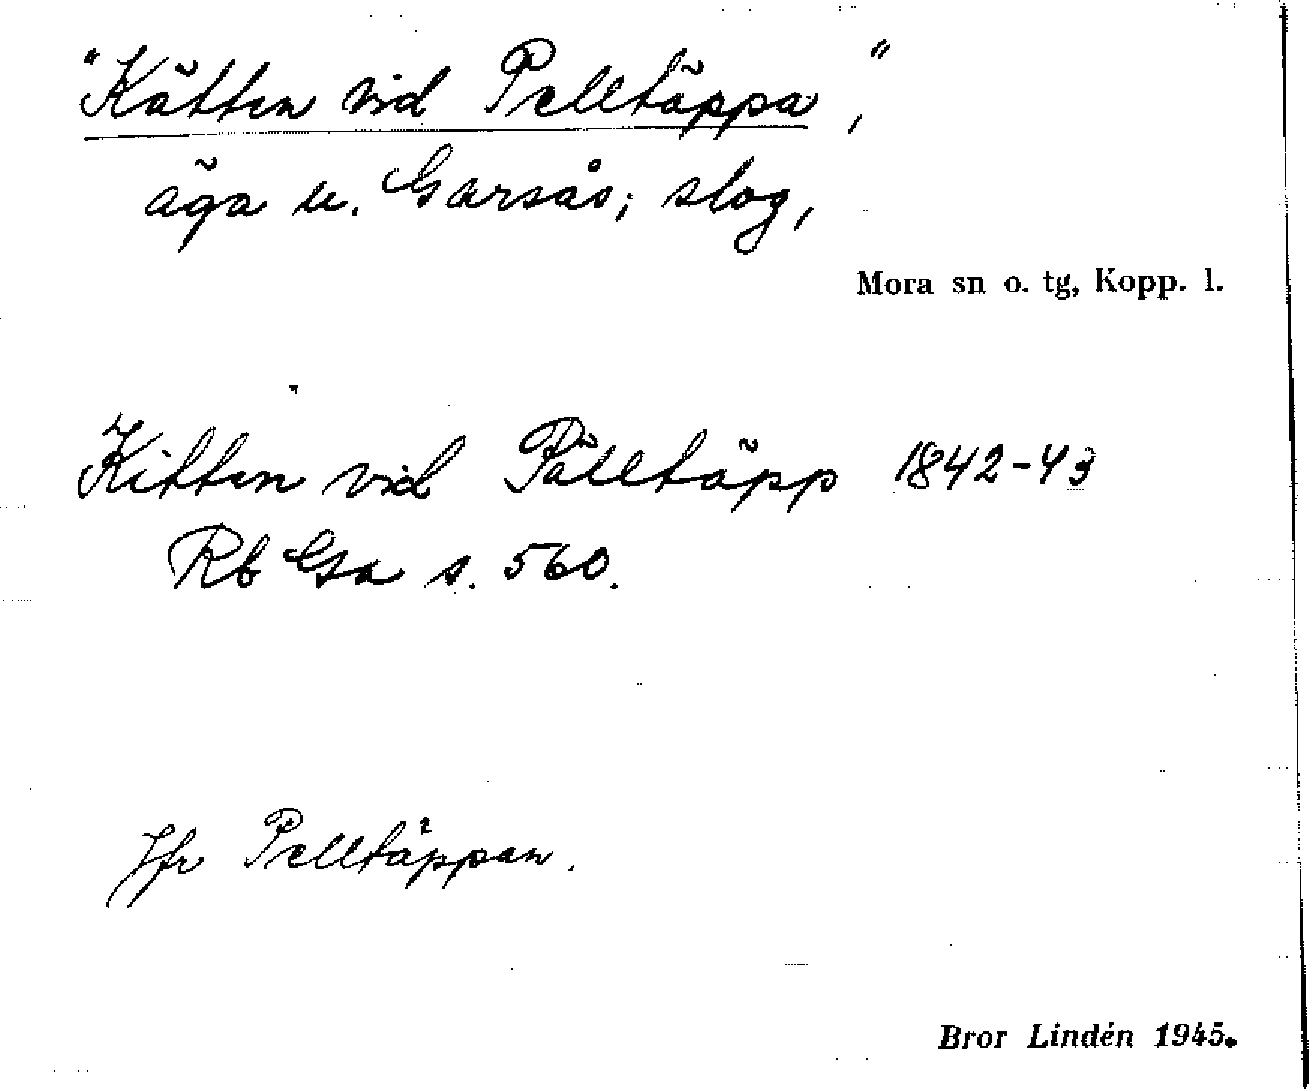 "Kätten vid Pelltäppa",
äga u. Garsås; slog,
Mora sn o. tg, Kopp. l.
Kitten vid Pälltäpp 1842-43
Rb Gsa s. 560.
Jfr Pelltäppan.
Bror Lindén 1945.